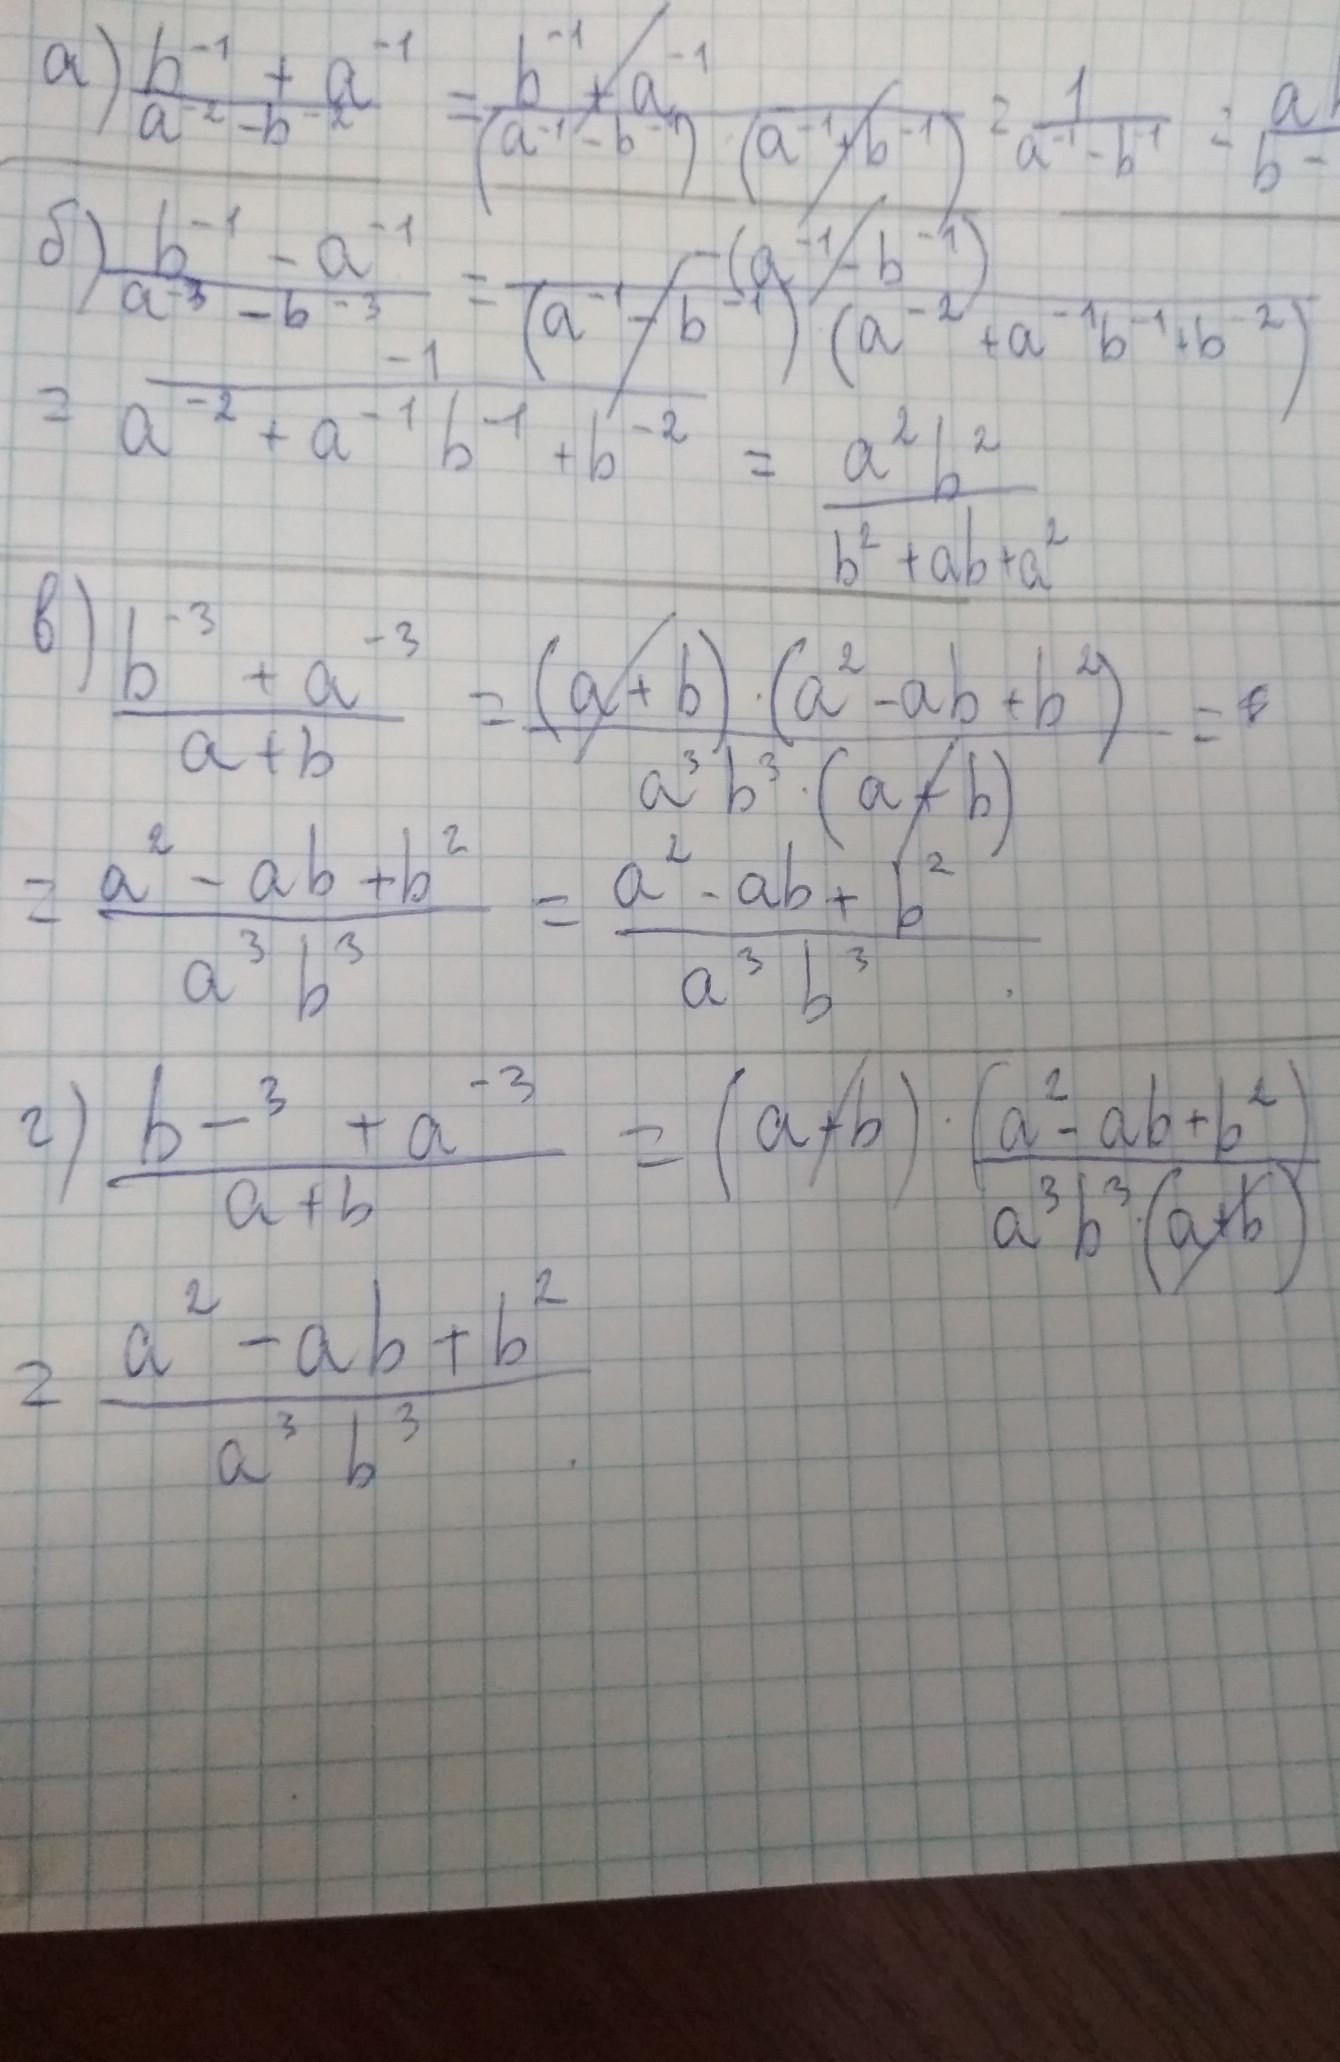 а) (b⁻¹ + a⁻¹)/(a⁻² - b⁻²) = (b⁻¹ + a⁻¹)/((a⁻¹ - b⁻¹) · (a⁻¹ + b⁻¹)) = 1/(a⁻¹ - b⁻¹) = ab/(b -
б) (b⁻¹ - a⁻¹)/(a⁻³ - b⁻³) = -(a⁻¹ - b⁻¹)/((a⁻¹ - b⁻¹) · (a⁻² + a⁻¹b⁻¹ + b⁻²))
= -1/(a⁻² + a⁻¹b⁻¹ + b⁻²) = a²b²/(b² + ab + a²)
в) (b⁻³ + a⁻³)/(a + b) = ((a + b) · (a² - ab + b²))/(a³b³ · (a + b)) =
= (a² - ab + b²)/(a³b³) = (a² - ab + b²)/(a³b³).
г) (b⁻³ + a⁻³)/(a + b) = (a + b) · (a² - ab + b²)/(a³b³ · (a + b))
= (a² - ab + b²)/(a³b³).